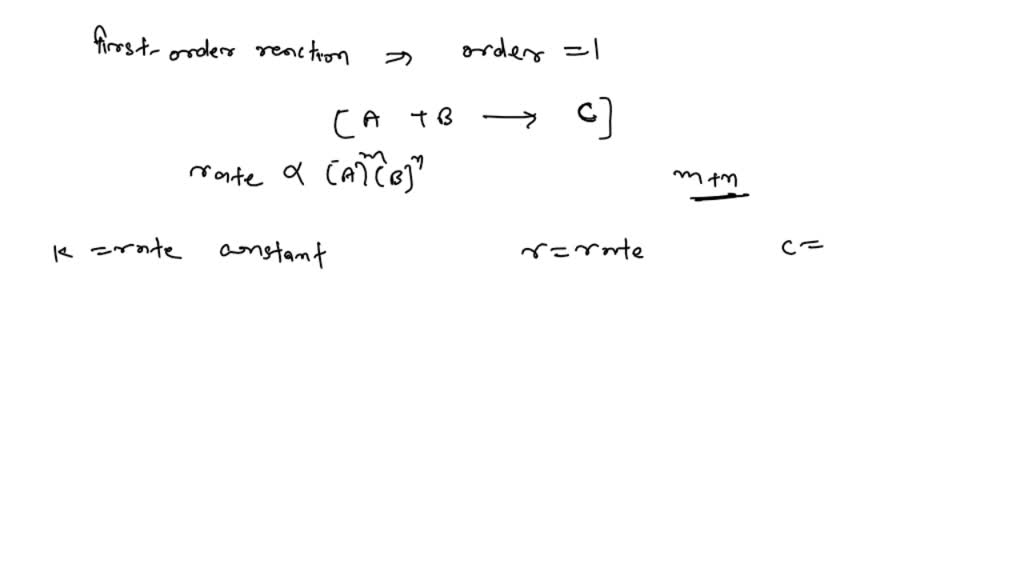 first-order reaction ⇒ order = 1
[A + B ⟶ C]
rate ∝ [A]^m [B]^n m+n
K = rate constant r = rate c =